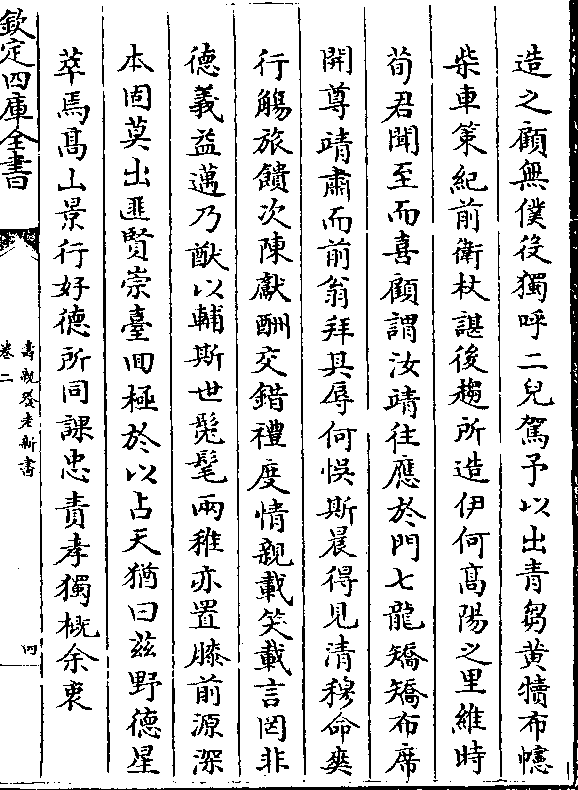 造之顧無僕役獨呼二兒駕予以出青芻黄犢布幰
柴車策紀前衛杖諶後趨所造伊何髙陽之里維時
荀君聞至而喜顧謂汝靖往應於門七龍矯矯布席
開尊靖肅而前翁拜其辱何悞斯晨得見清穆命爽
行觴旅饋次陳獻酬交錯禮度情親載笑載言罔非
德義益邁乃猷以輔斯世髧髦兩稚亦置膝前源深
本固莫出匪賢崇臺回極於以占天猶曰兹野德星
萃焉髙山景行好德所同課忠責孝獨概余衷
欽定四庫全書
壽親養老新書
卷二
四